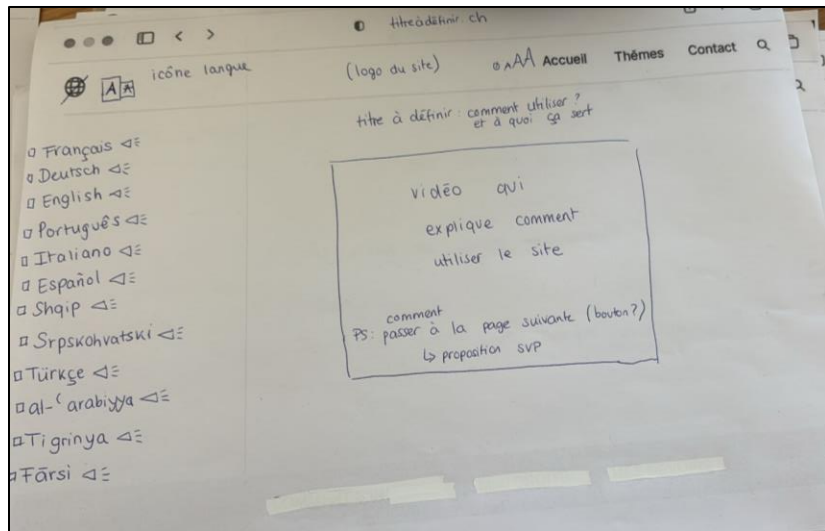 titreàdéfinir.ch
AA icône langue
(logo du site)
AAA Accueil Thèmes Contact
titre à définir : comment utiliser ?
et à quoi ça sert
Français
Deutsch
English
Português
Italiano
Español
Shqip
Srpskohvatski
Türkçe
al-ʿarabiyya
Tigrinya
Fārsi
vidéo qui
explique comment
utiliser le site
comment
PS: passer à la page suivante (bouton?)
↳ proposition SVP